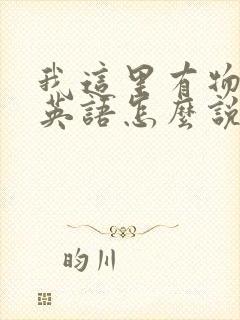 我這里有物
英語怎麼說
昀川